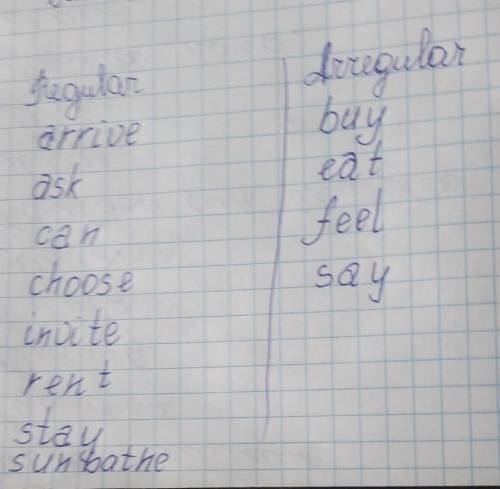 Regular
arrive
ask
can
choose
invite
rent
stay
sunbathe
Irregular
buy
eat
feel
say